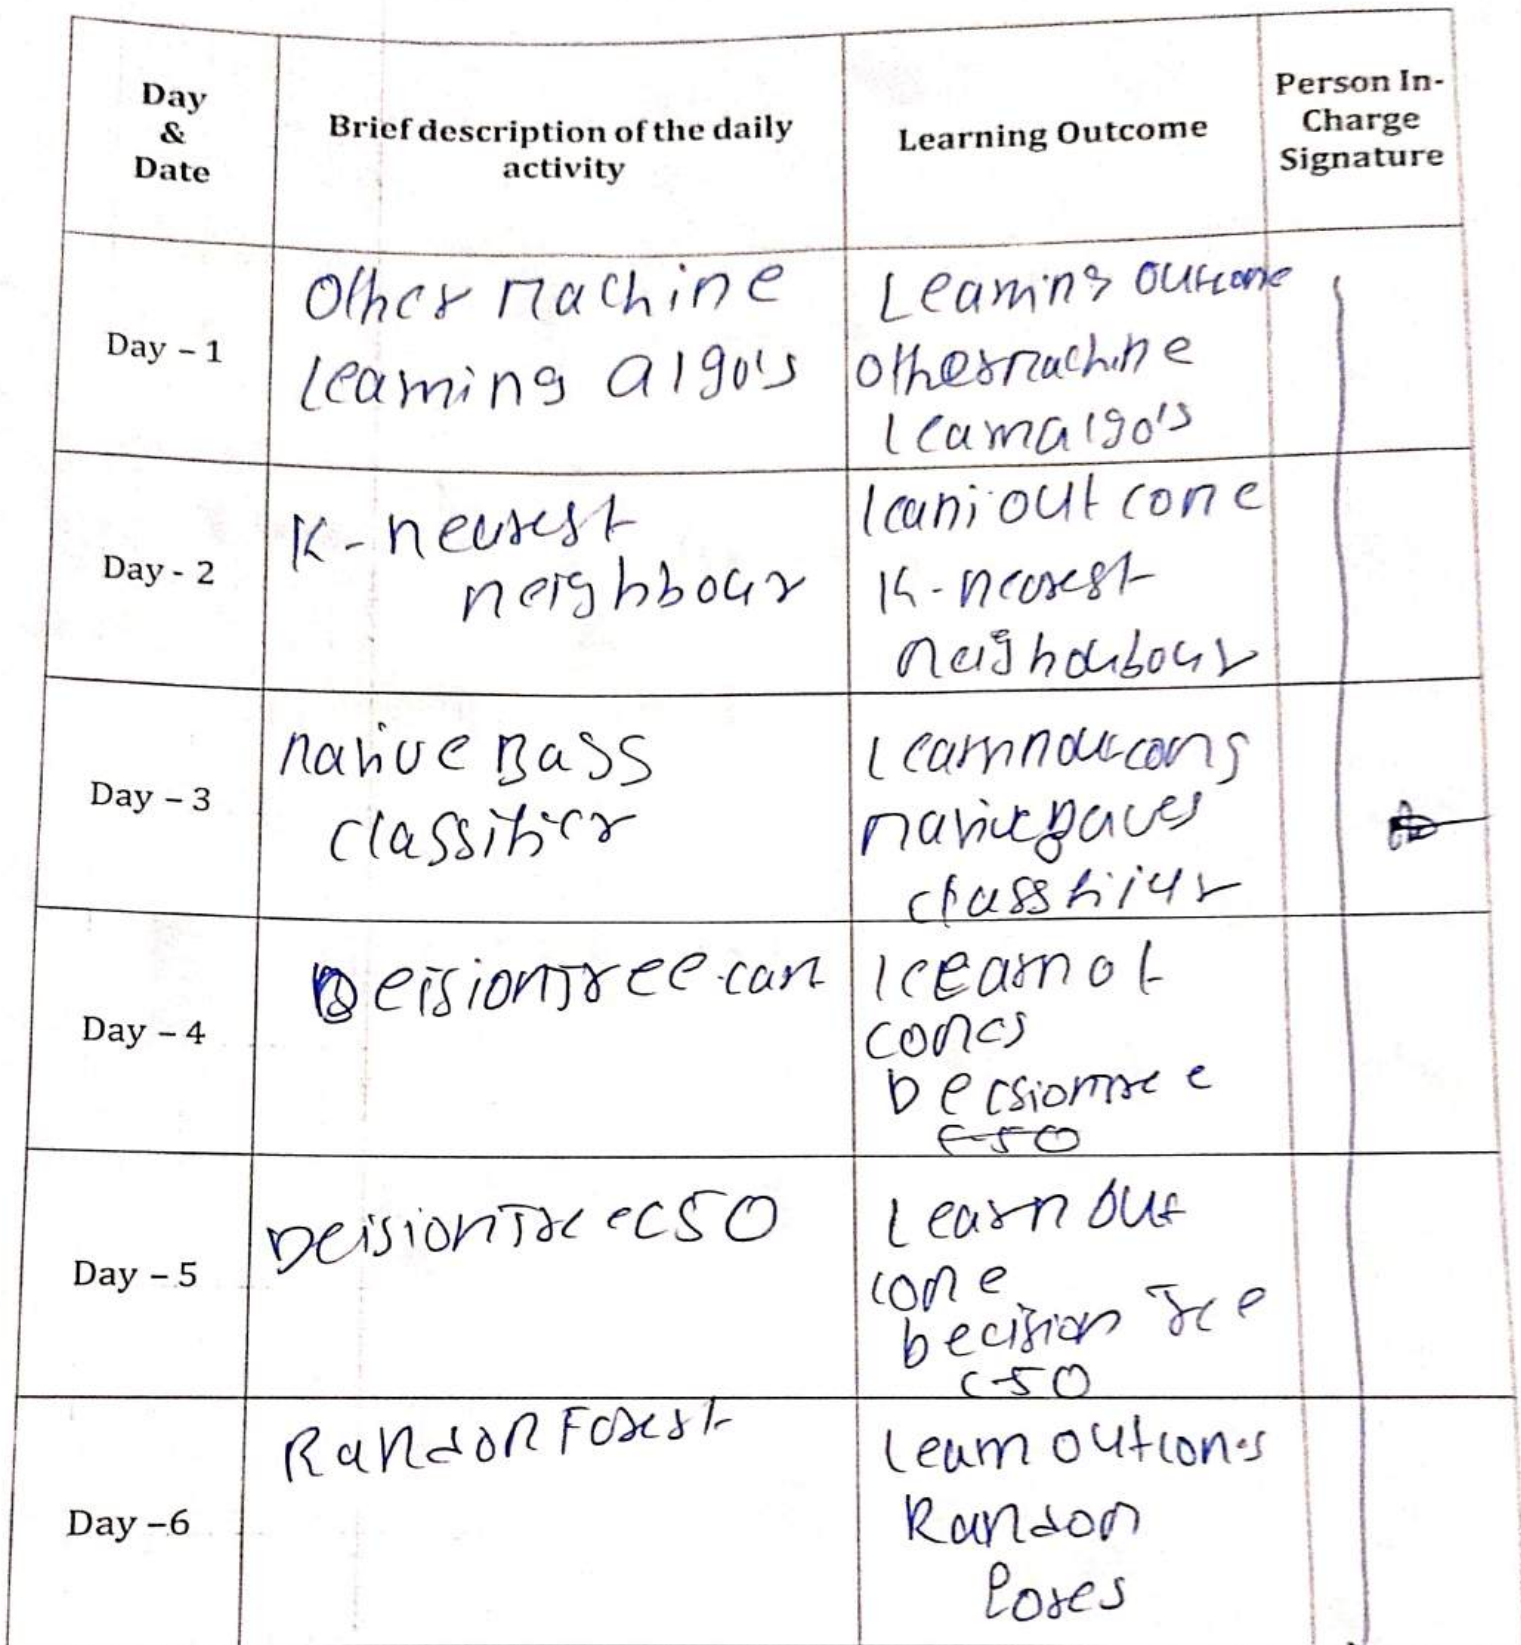 Day
&
Date
Brief description of the daily
activity
Learning Outcome
Person In-
Charge
Signature
Day – 1
Other Machine
learning algo's
Learning outcome
other machine
learn algo's
Day - 2
K-nearest
neighbour
learni outcome
K-nearest
neighoubour
Day – 3
native Bass
classifier
native
Day – 4
Deision Tree cart
Decsion Tree
C50
Day – 5
Deision Tree C50
Learn out
come
Decision Tree
C50
Day –6
Random Forest
learn outcom.s
Random
Fores